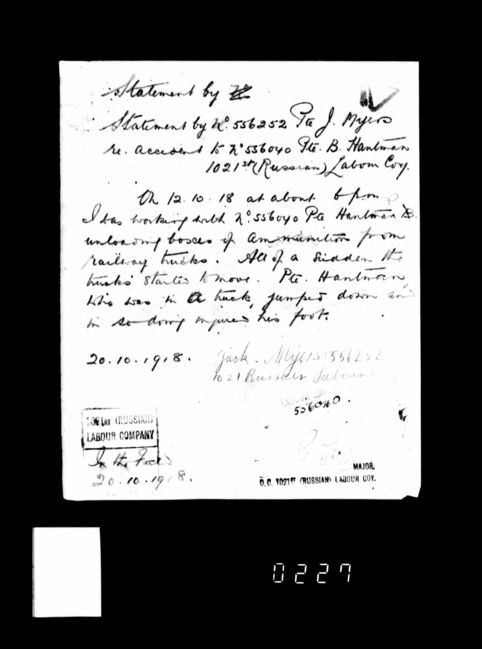 Statement by
Statement by No 556252 Pte J. Myers
re. accident to No 556040 Pte. B. Hantman
1021st (Russian) Labour Coy.
On 12.10.18 at about 6 pm
I was working with No 556040 Pte Hantman B.
unloading boxes of ammunition from
railway trucks. All of a sudden the
trucks started to move. Pte. Hantman,
who was in a truck, jumped down and
in so doing injured his foot.
20.10.1918. Jack. Myers. 556252
1021 Russian Labour
556040.
1021st (RUSSIAN)
LABOUR COMPANY
In the Field
20.10.1918.
MAJOR,
O.C. 1021ST (RUSSIAN) LABOUR COY.
0227